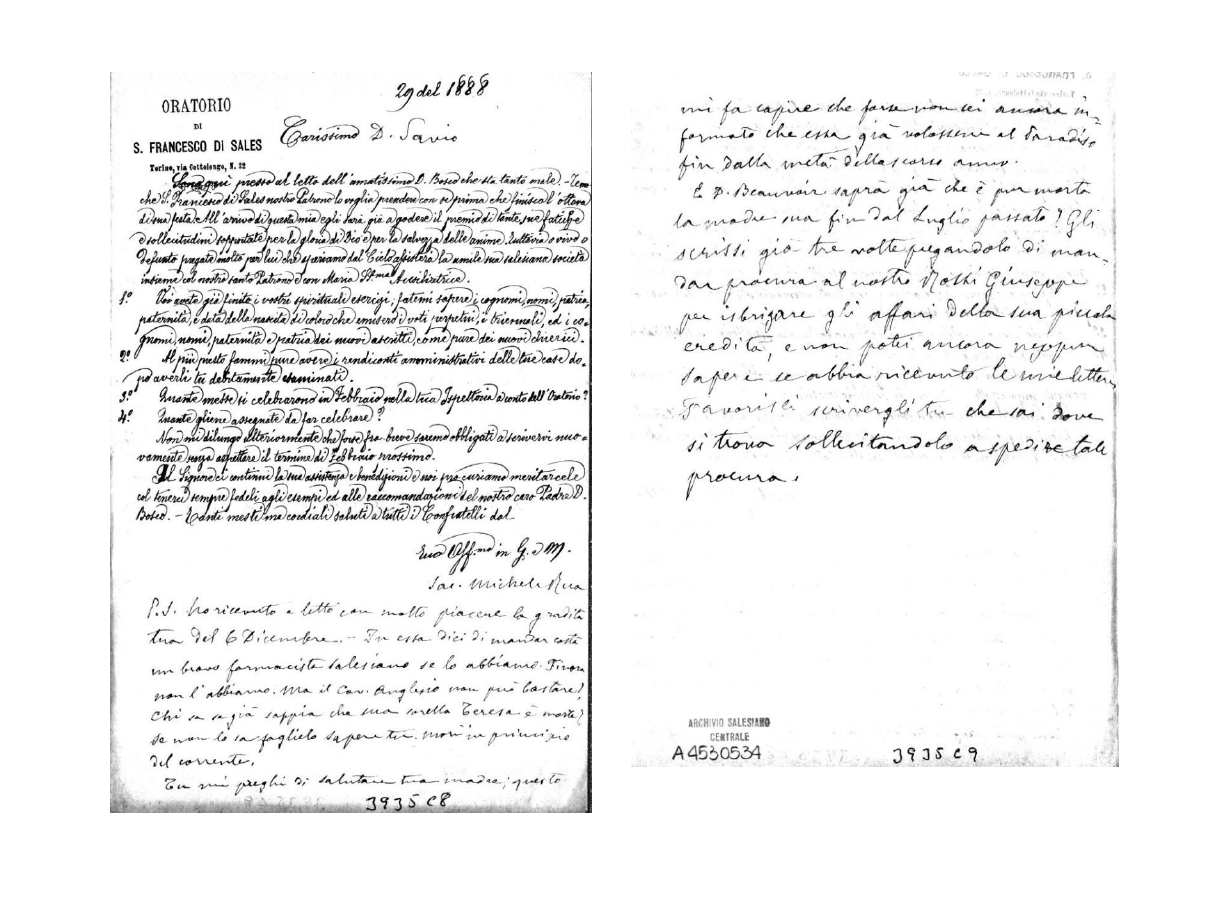 29 del 1888
ORATORIO
DI
S. FRANCESCO DI SALES
Torino, via Cottolengo, N. 32
Carissimo D. Savio
Sono qui presso al letto dell'amatissimo D. Bosco che sta tanto male. - Temo
che S. Francesco di Sales nostro Patrono lo voglia prendere con se prima che finisca l'ottava
di sua festa. All'arrivo di questa mia egli sarà già a godere il premio di tante sue fatiche
e sollecitudini sopportate per la gloria di Dio e per la salvezza delle anime. Tuttavia o vivo o
defunto pregate molto per lui che speriamo dal Cielo assisterà la umile sua salesiana società
insieme col nostro santo Patrono e con Maria SS.ma Ausiliatrice.
1º Voi avete già finito i vostri spirituali esercizi; fatemi sapere i cognomi, nomi, patria,
paternità, e data della nascita di coloro che emisero i voti perpetui, i triennali, ed i co-
gnomi, nomi, paternità e patria dei nuovi ascritti, come pure dei nuovi chierici.
2º Al più presto fammi pure avere i rendiconti amministrativi delle tue case do-
po averli tu debitamente esaminati.
3º Quante messe si celebrarono in Febbraio nella tua Ispettoria a conto dell'Oratorio?
4º Quante gliene assegnate da far celebrare?
Non mi dilungo ulteriormente che forse fra breve saremo obbligati a scrivervi nuo-
vamente senza aspettare il termine di Febbraio prossimo.
Il Signore ci continui la sua assistenza e benedizioni e noi procuriamo meritarcele
col tenerci sempre fedeli agli esempi ed alle raccomandazioni del nostro caro Padre D.
Bosco. - Tanti mesti ma cordiali saluti a tutti i Confratelli dal
Tuo Aff.mo in G. e M.
Sac. Michele Rua
P.S. Ho ricevuto e letto con molto piacere la gradita
tua del 6 Dicembre. - In essa dici di mandar costà
un bravo farmacista salesiano se lo abbiamo. Finora
non l'abbiamo. Ma il Cav. Anglesio non può bastare?
Chi sa se già sappia che sua sorella Teresa è morta?
se non lo sa faglielo sapere tu. morì in principio
del corrente.
Tu mi preghi di salutare tua madre; questo
3935 C8
mi fa capire che forse non sei ancora in-
formato che essa già volossene al Paradiso
fin dalla metà dello scorso anno.
E D. Beauvoir saprà già che è pur morta
la madre sua fin dal Luglio passato? Gli
scrissi già tre volte pregandolo di man-
dar procura al nostro Rossi Giuseppe
per isbrigare gli affari della sua piccola
eredità, e non potei ancora neppure
sapere se abbia ricevuto le mie lettere.
Favorisci scrivergli tu che sai dove
si trova sollecitandolo a spedire tale
procura.
ARCHIVIO SALESIANO
CENTRALE
A4530534
3935 C9